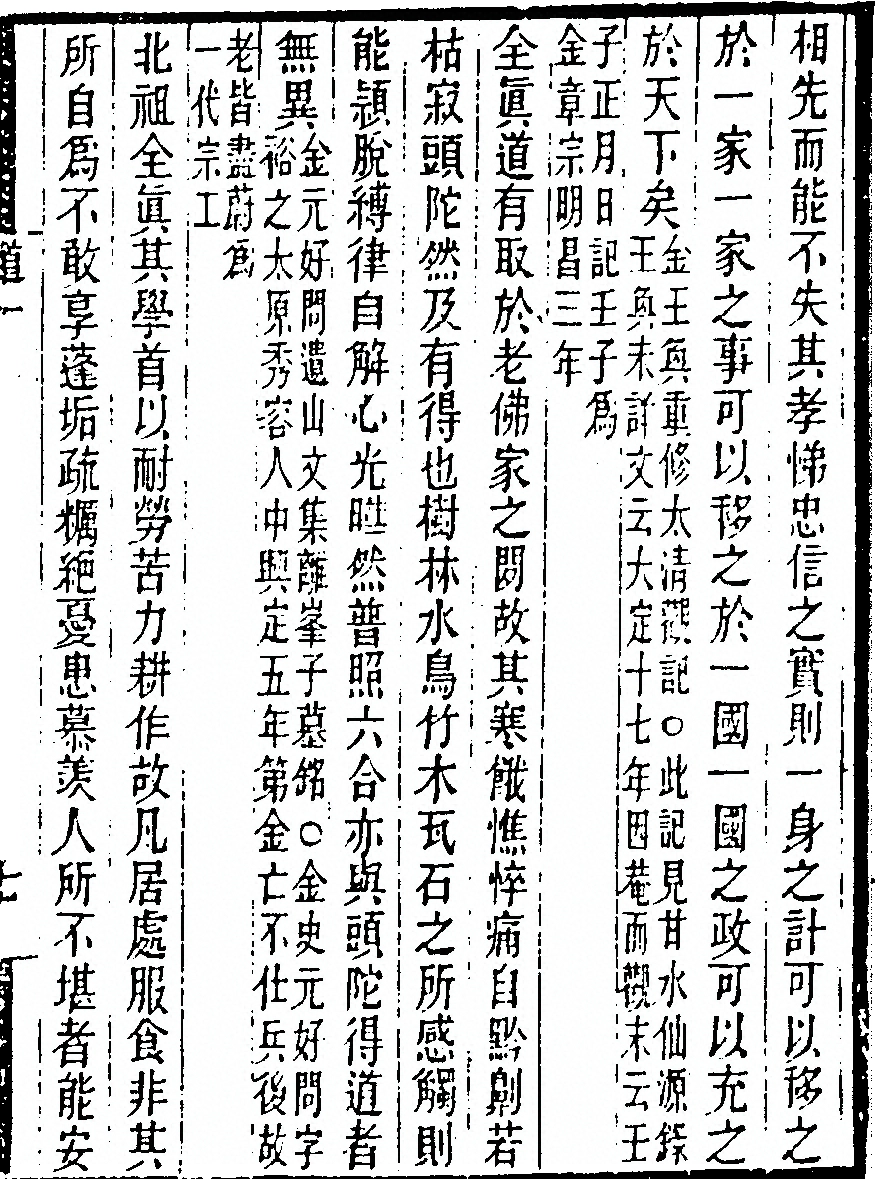 相先而能不失其孝悌忠信之實則一身之計可以移之
於一家一家之事可以移之於一國一國之政可以充之
於天下矣
金王㒷重修太清觀記○此記見甘水仙源錄
王㒷未詳文云大定十七年因菴而觀末云壬
子正月日記壬子爲
金章宗明昌三年
全眞道有取於老佛家之間故其寒餓憔悴痛自黔劓若
枯寂頭陀然及有得也樹林水鳥竹木瓦石之所感觸則
能頴脫縛律自解心光曄然普照六合亦與頭陀得道者
無異
金元好問遺山文集離峯子墓銘○金史元好問字
裕之太原秀容人中興定五年第金亡不仕兵後故
老皆盡蔚爲
一代宗工
北祖全眞其學首以耐勞苦力耕作故凡居處服食非其
所自爲不敢享蓬垢疏糲絕憂患慕羨人所不堪者能安
道一
七